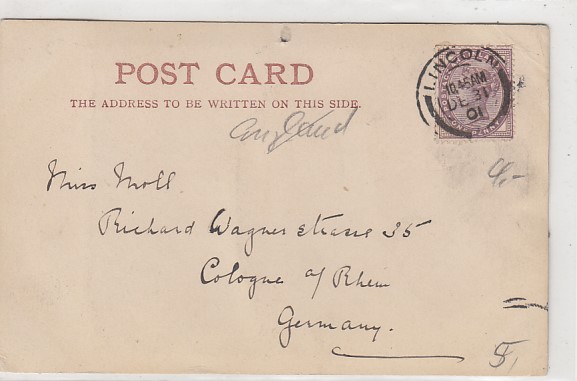 POST CARD
THE ADDRESS TO BE WRITTEN ON THIS SIDE.
LINCOLN
10.45AM
DE 31
01
England
Miss Moll
Richard Wagner Strasse 35
Cologne a/Rhein
Germany.
4,-
5,